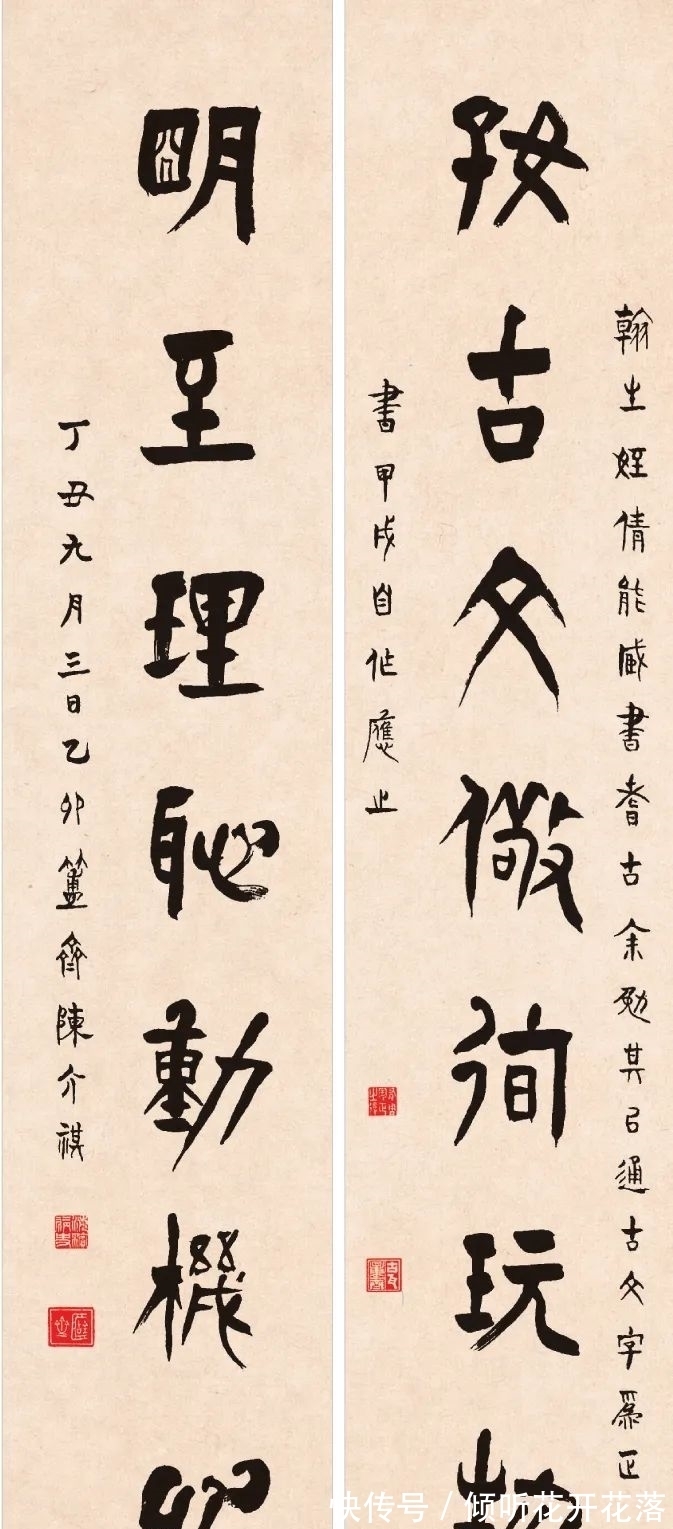 翰生姪倩能藏書耆古余勉其㠯通古文字為正
好古文儆徇玩
書甲戌自作應之
明至理恥動機
丁丑九月三日乙卯簠齋陳介祺
快传号 / 倾听花开花落